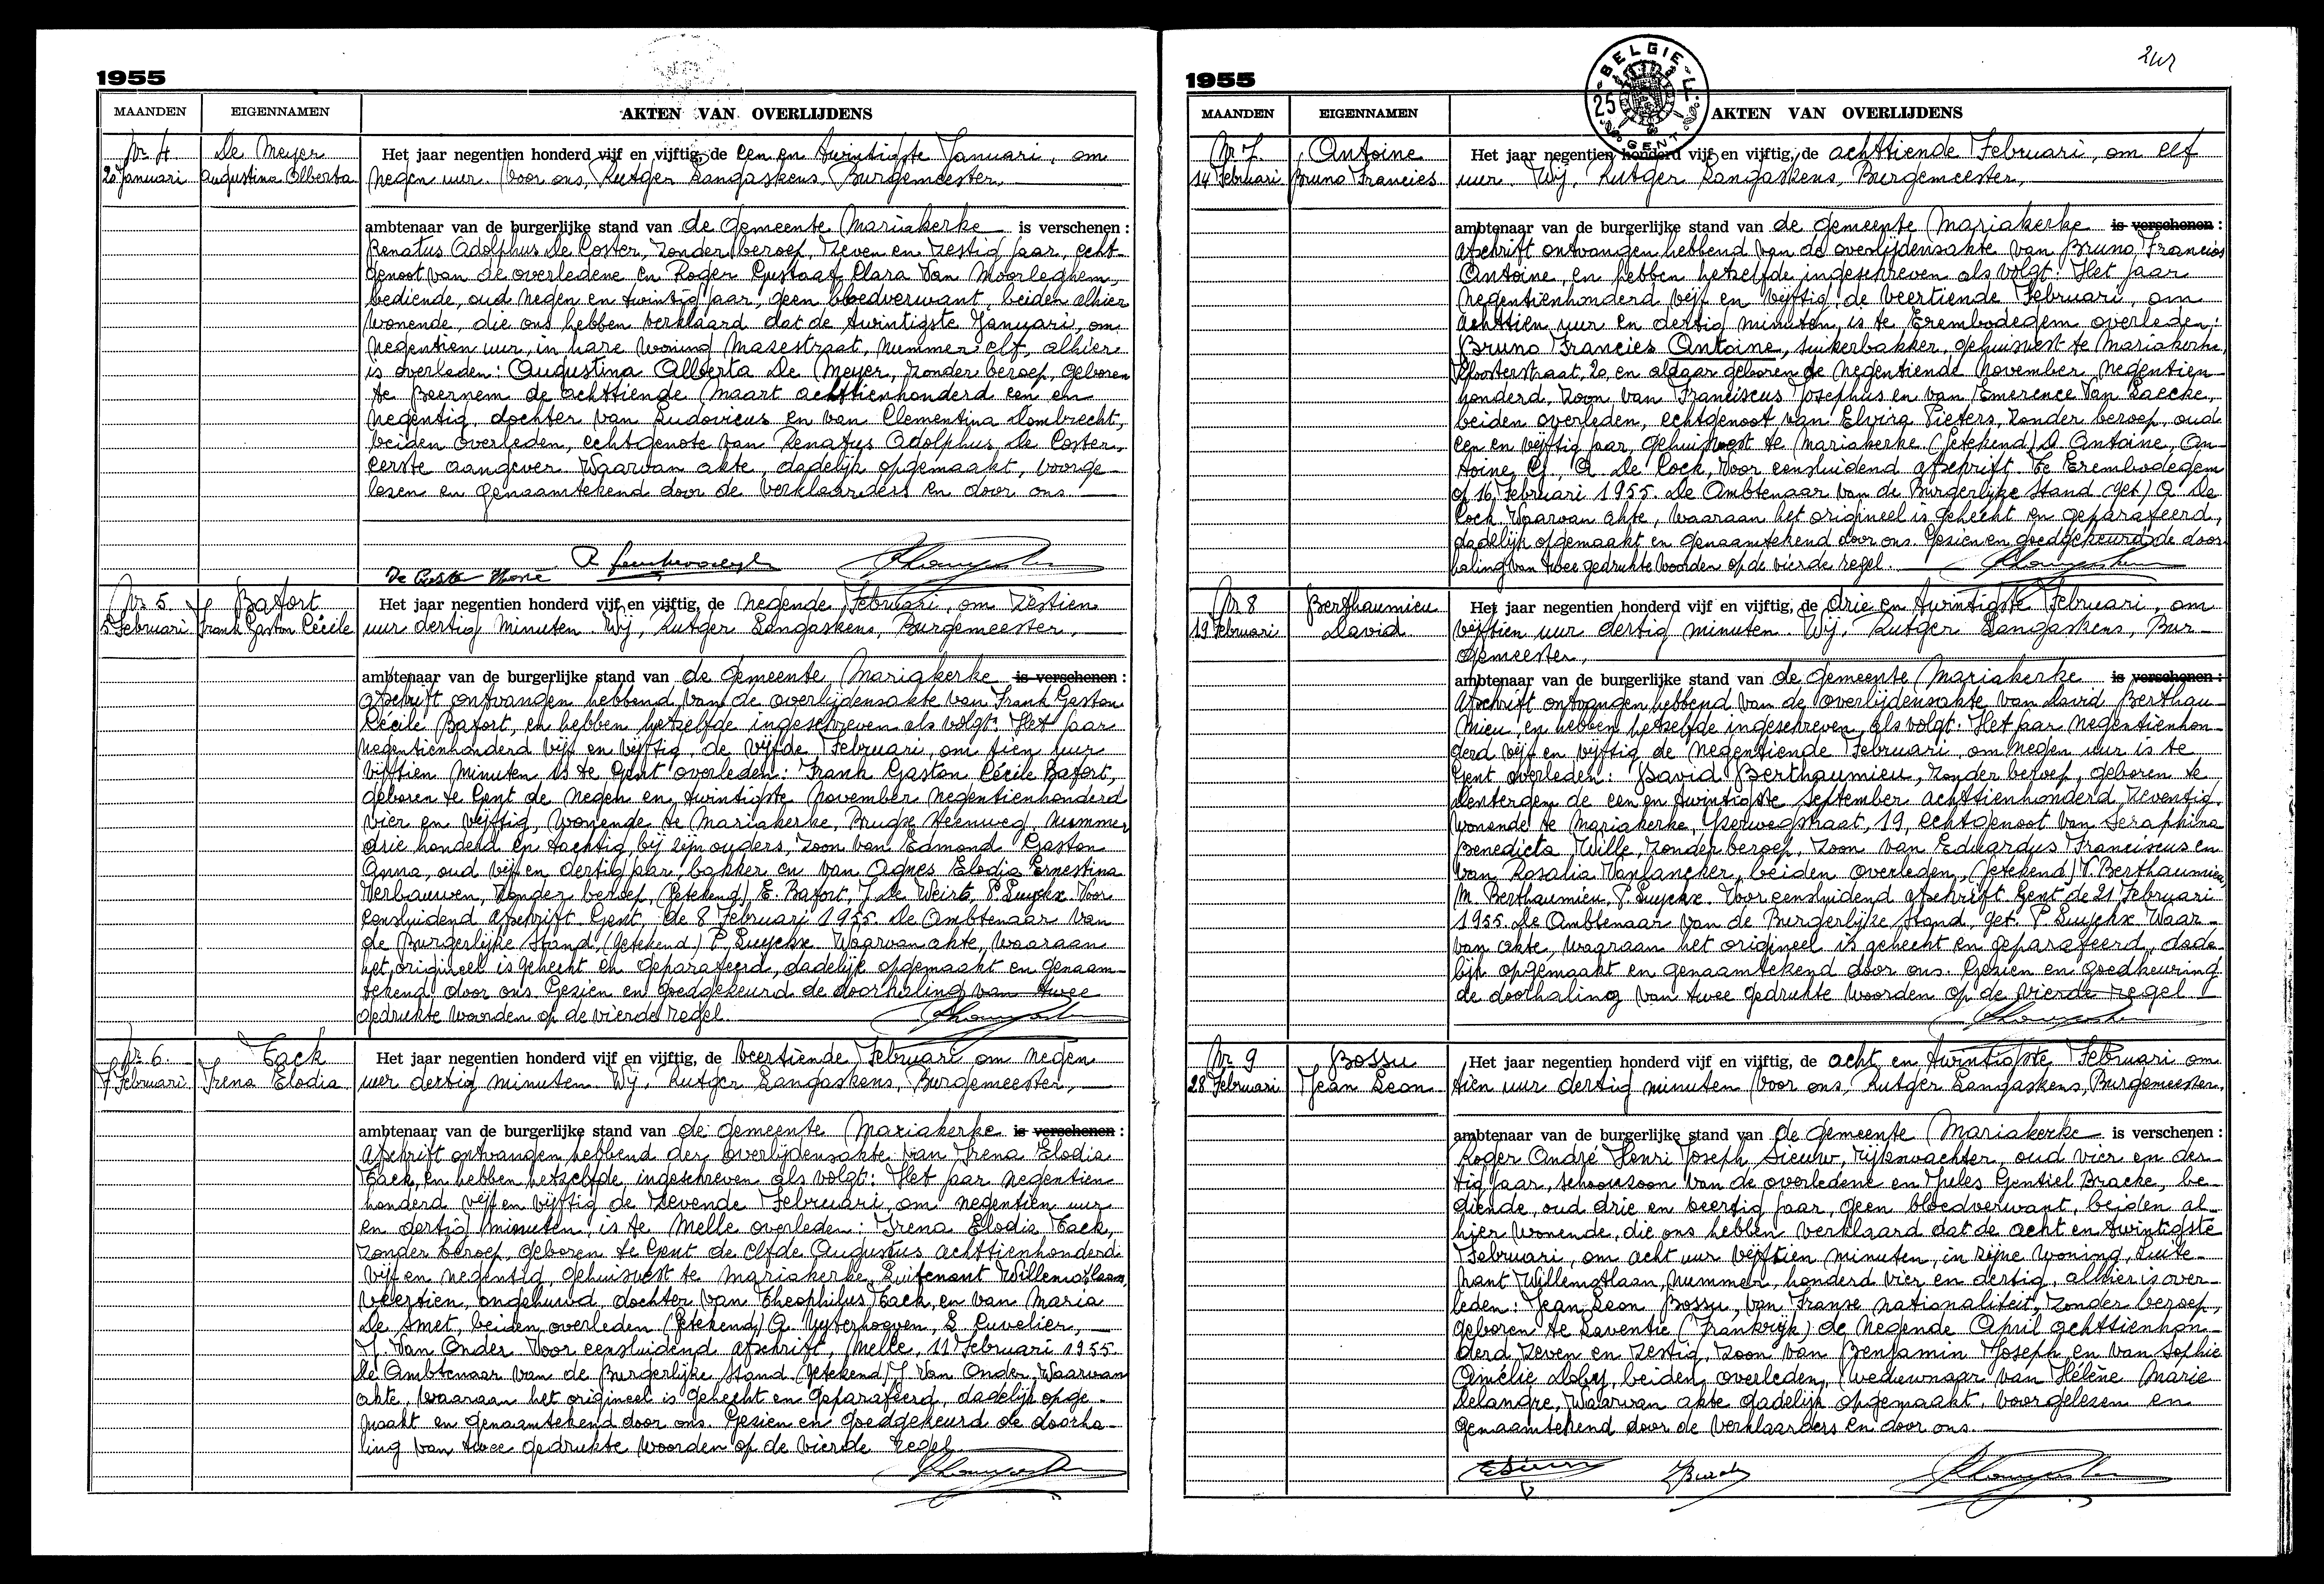 1955
MAANDEN EIGENNAMEN AKTEN VAN OVERLIJDENS
Nr 4. De Meyer Het jaar negentien honderd vijf en vijftig, de een en twintigste Januari, om
20 Januari Augustina Alberta negen uur. Voor ons, Rutger Langaskens, Burgemeester,
ambtenaar van de burgerlijke stand van de gemeente Mariakerke is verschenen :
Renatus Adolphus De Coster, zonder beroep, zeven en zestig jaar, echt-
genoot van de overledene en Roger Gustaaf Clara Van Moorleghem,
bediende, oud negen en twintig jaar, geen bloedverwant, beiden alhier
wonende, die ons hebben verklaard dat de twintigste Januari, om
negentien uur, in hare woning Masestraat, nummer elf, alhier
is overleden: Augustina Alberta De Meyer, zonder beroep, geboren
te Beernem de achttiende Maart achttienhonderd een en
negentig, dochter van Ludovicus en van Clementina Dombrecht,
beiden overleden, echtgenote van Renatus Adolphus De Coster,
eerste aangever. Waarvan akte, dadelijk opgemaakt, voorge-
lezen en genaamtekend door de verklaarders en door ons.
Nr 5. Bafort Het jaar negentien honderd vijf en vijftig, de negende Februari, om zestien
5 Februari Frank Gaston Cécile uur dertig minuten. Wij, Rutger Langaskens, Burgemeester,
ambtenaar van de burgerlijke stand van de gemeente Mariakerke is verschenen :
Afschrift ontvangen hebbend van de overlijdensakte van Frank Gaston
Cécile Bafort, en hebben hetzelfde ingeschreven als volgt: Het jaar
negentienhonderd vijf en vijftig, de vijfde Februari, om tien uur
vijftien minuten is te Gent overleden: Frank Gaston Cécile Bafort,
geboren te Gent de negen en twintigste November negentienhonderd
vier en vijftig, wonende te Mariakerke, Brugse Steenweg, nummer
drie honderd en tachtig, bij zijn ouders, zoon van Edmond Gaston
Anna, oud vijf en dertig jaar, bakker en van Agnes Elodia Ernestina
Verbauwen, zonder beroep, (getekend) E. Bafort, J. De Weirt, P. Luyckx. Voor
eensluidend afschrift. Gent, de 8 Februari 1955. De Ambtenaar van
de Burgerlijke Stand, (getekend) P. Luyckx. Waarvan akte, waaraan
het origineel is gehecht en geparafeerd, dadelijk opgemaakt en genaam-
tekend door ons. Gezien en goedgekeurd de doorhaling van twee
gedrukte woorden op de vierde regel.
Nr 6. Tack Het jaar negentien honderd vijf en vijftig, de veertiende Februari om negen
7 Februari Irena Elodia uur dertig minuten. Wij, Rutger Langaskens, Burgemeester,
ambtenaar van de burgerlijke stand van de gemeente Mariakerke is verschenen :
Afschrift ontvangen hebbend der overlijdensakte van Irena Elodia
Tack, en hebben hetzelfde ingeschreven als volgt: Het jaar negentien
honderd vijf en vijftig de zevende Februari, om negentien uur
en dertig minuten, is te Melle overleden: Irena Elodia Tack,
zonder beroep, geboren te Gent de elfde Augustus achttienhonderd
vijf en negentig, gehuisvest te Mariakerke, Luitenant Willemotlaan,
veertien, ongehuwd, dochter van Theophilus Tack, en van Maria
De Smet, beiden overleden (getekend) G. Uyterhoeven, S. Cuvelier,
J. Van Onder. Voor eensluidend afschrift, Melle, 11 Februari 1955
De Ambtenaar van de Burgerlijke Stand (getekend) J. Van Onder. Waarvan
akte, waaraan het origineel is gehecht en geparafeerd, dadelijk opge-
maakt en genaamtekend door ons. Gezien en goedgekeurd de doorha-
ling van twee gedrukte woorden op de vierde regel.
BELGIE
25
GENT
1955
MAANDEN EIGENNAMEN AKTEN VAN OVERLIJDENS
Nr 7. Antoine Het jaar negentien honderd vijf en vijftig, de achttiende Februari, om elf
14 Februari Bruno Francies uur. Wij, Rutger Langaskens, Burgemeester,
ambtenaar van de burgerlijke stand van de gemeente Mariakerke is verschenen :
Afschrift ontvangen hebbend van de overlijdensakte van Bruno Francies
Antoine, en hebben hetzelfde ingeschreven als volgt: Het jaar
negentienhonderd vijf en vijftig de veertiende Februari, om
achttien uur en dertig minuten, is te Erembodegem overleden:
Bruno Francies Antoine, suikerbakker, gehuisvest te Mariakerke,
Kloosterstraat, 20, en aldaar geboren de negentiende November negentien-
honderd, zoon van Franciscus Josephus en van Emerence Van Laecke,
beiden overleden, echtgenoot van Elvira Pieters, zonder beroep, oud
een en vijftig jaar, gehuisvest te Mariakerke. (getekend) D. Antoine, An-
toine G., A. De Cock, Voor eensluidend afschrift. Te Erembodegem
op 16 Februari 1955. De Ambtenaar van de Burgerlijke Stand (get) A. De
Cock. Waarvan akte, waaraan het origineel is gehecht en geparafeerd,
dadelijk opgemaakt en genaamtekend door ons. Gezien en goedgekeurd de door-
haling van twee gedrukte woorden op de vierde regel.
Nr 8 Berthaumieu Het jaar negentien honderd vijf en vijftig, de drie en twintigste Februari, om
19 Februari David vijftien uur dertig minuten. Wij, Rutger Langaskens, Bur-
gemeester,
ambtenaar van de burgerlijke stand van de gemeente Mariakerke is verschenen :
Afschrift ontvangen hebbend van de overlijdensakte van David Berthau-
mieu, en hebben hetzelfde ingeschreven als volgt: Het jaar negentienhon-
derd vijf en vijftig de negentiende Februari, om negen uur is te
Gent overleden: David Berthaumieu, zonder beroep, geboren te
Dentergem de een en twintigste September achttienhonderd zeventig,
wonende te Mariakerke, 19, echtgenoot van Seraphina
Benedicta Wille, zonder beroep, zoon van Eduardus Franciscus en
van Rosalia Vanlancker, beiden overleden, (getekend) V. Berthaumieu,
M. Berthaumieu, P. Luyckx. Voor eensluidend afschrift Gent de 21 Februari
1955. De Ambtenaar van de Burgerlijke Stand, get. P. Luyckx. Waar-
van akte, waaraan het origineel is gehecht en geparafeerd, dade-
lijk opgemaakt en genaamtekend door ons. Gezien en goedkeuring
de doorhaling van twee gedrukte woorden op de vierde regel.
Nr 9 Bossu Het jaar negentien honderd vijf en vijftig, de acht en twintigste Februari om
28 Februari Jean Leon tien uur dertig minuten Voor ons, Rutger Langaskens, Burgemeester,
ambtenaar van de burgerlijke stand van de Gemeente Mariakerke is verschenen :
Roger André Henri Joseph Sieuw, rijkswachter, oud vier en der-
tig jaar, schoonzoon van de overledene en Jules Gentiel Bracke, be-
diende, oud drie en veertig jaar, geen bloedverwant, beiden al-
hier wonende, die ons hebben verklaard dat de acht en twintigste
Februari, om acht uur vijftien minuten, in zijne woning, Luite-
nant Willemotlaan, nummer, honderd vier en dertig, alhier is over-
leden: Jean Leon Bossu, van Franse nationaliteit, zonder beroep,
geboren te Laventie (Frankrijk) de negende April achttienhon-
derd zeven en zestig, zoon van Benjamin Joseph en van Sophie
Amélie Doby, beiden overleden, weduwnaar van Hélène Marie
Delangre, Waarvan akte dadelijk opgemaakt, voorgelezen en
genaamtekend door de verklaarders en door ons.